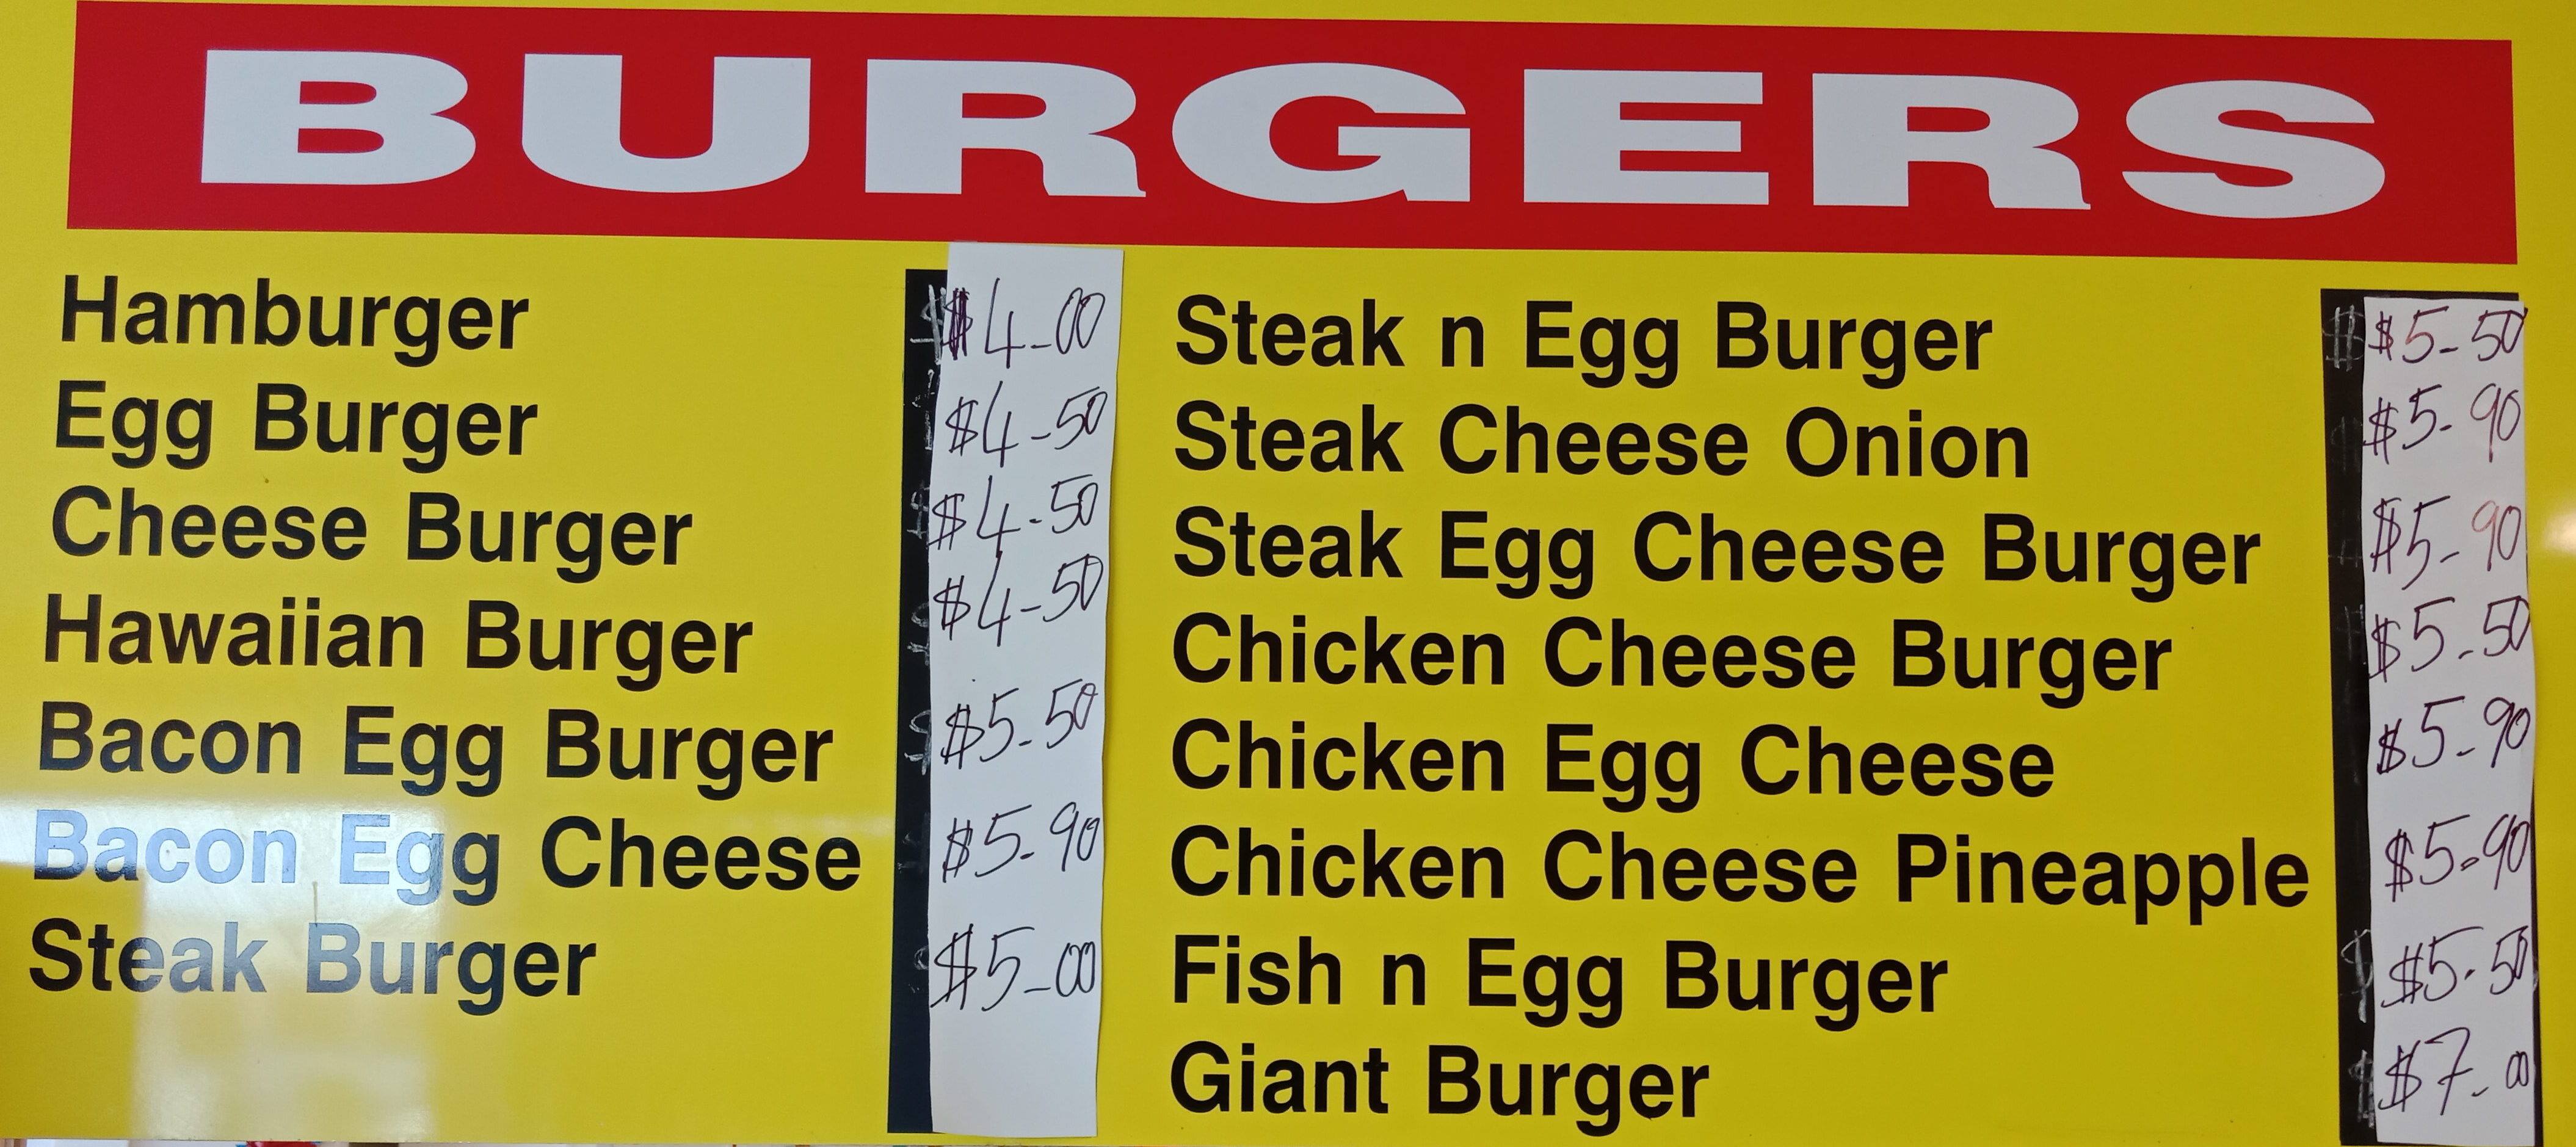 BURGERS
Hamburger $4-00
Egg Burger $4-50
Cheese Burger $4-50
Hawaiian Burger $4-50
Bacon Egg Burger $5-50
Bacon Egg Cheese $5-90
Steak Burger $5-00
Steak n Egg Burger $5-50
Steak Cheese Onion $5-90
Steak Egg Cheese Burger $5-90
Chicken Cheese Burger $5-50
Chicken Egg Cheese $5-90
Chicken Cheese Pineapple $5-90
Fish n Egg Burger $5-50
Giant Burger $7-00